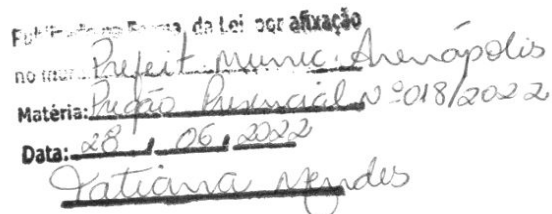 Publicado na Forma, da Lei por afixação
no mural Prefeit. Munic. Arenápolis
Matéria: Pregão Presencial Nº 018/2022
Data: 28 / 06 / 2022
Tatiana Mendes